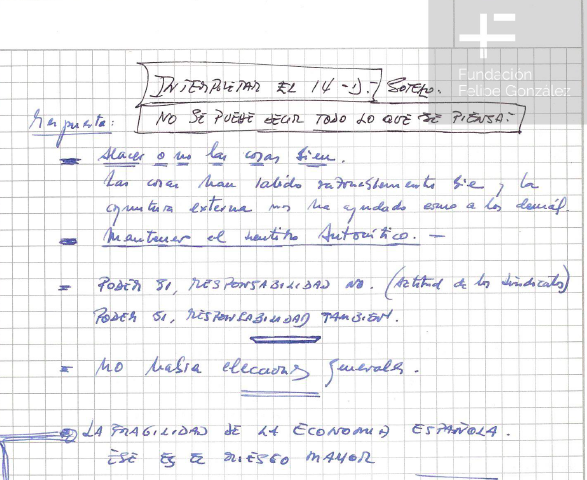 Fundación
Felipe González
INTERPRETAR EL 14-D. SOTELO.
NO SE PUEDE DECIR TODO LO QUE SE PIENSA.
Respuesta:
Hacer o no las cosas bien.
Las cosas han salido razonablemente bien y la
coyuntura externa nos ha ayudado como a los demás.
Mantener el sentido Autocrítico. —
= PODER SI, RESPONSABILIDAD NO. (Actitud de los sindicatos)
PODER SI, RESPONSABILIDAD TAMBIEN.
= No había elecciones generales.
LA FRAGILIDAD DE LA ECONOMIA ESPAÑOLA.
ESE ES EL RIESGO MAYOR